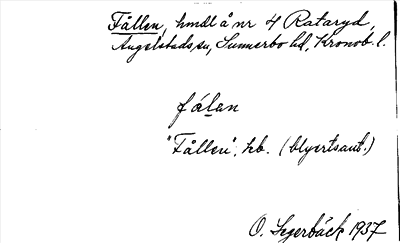 Fållen, hmdl å nr 4 Rataryd,
Angelstads sn, Sunnerbo hd, Kronob. l.
fålan
"Fållen", hb. (blyertsant.)
O. Segerbäck 1937